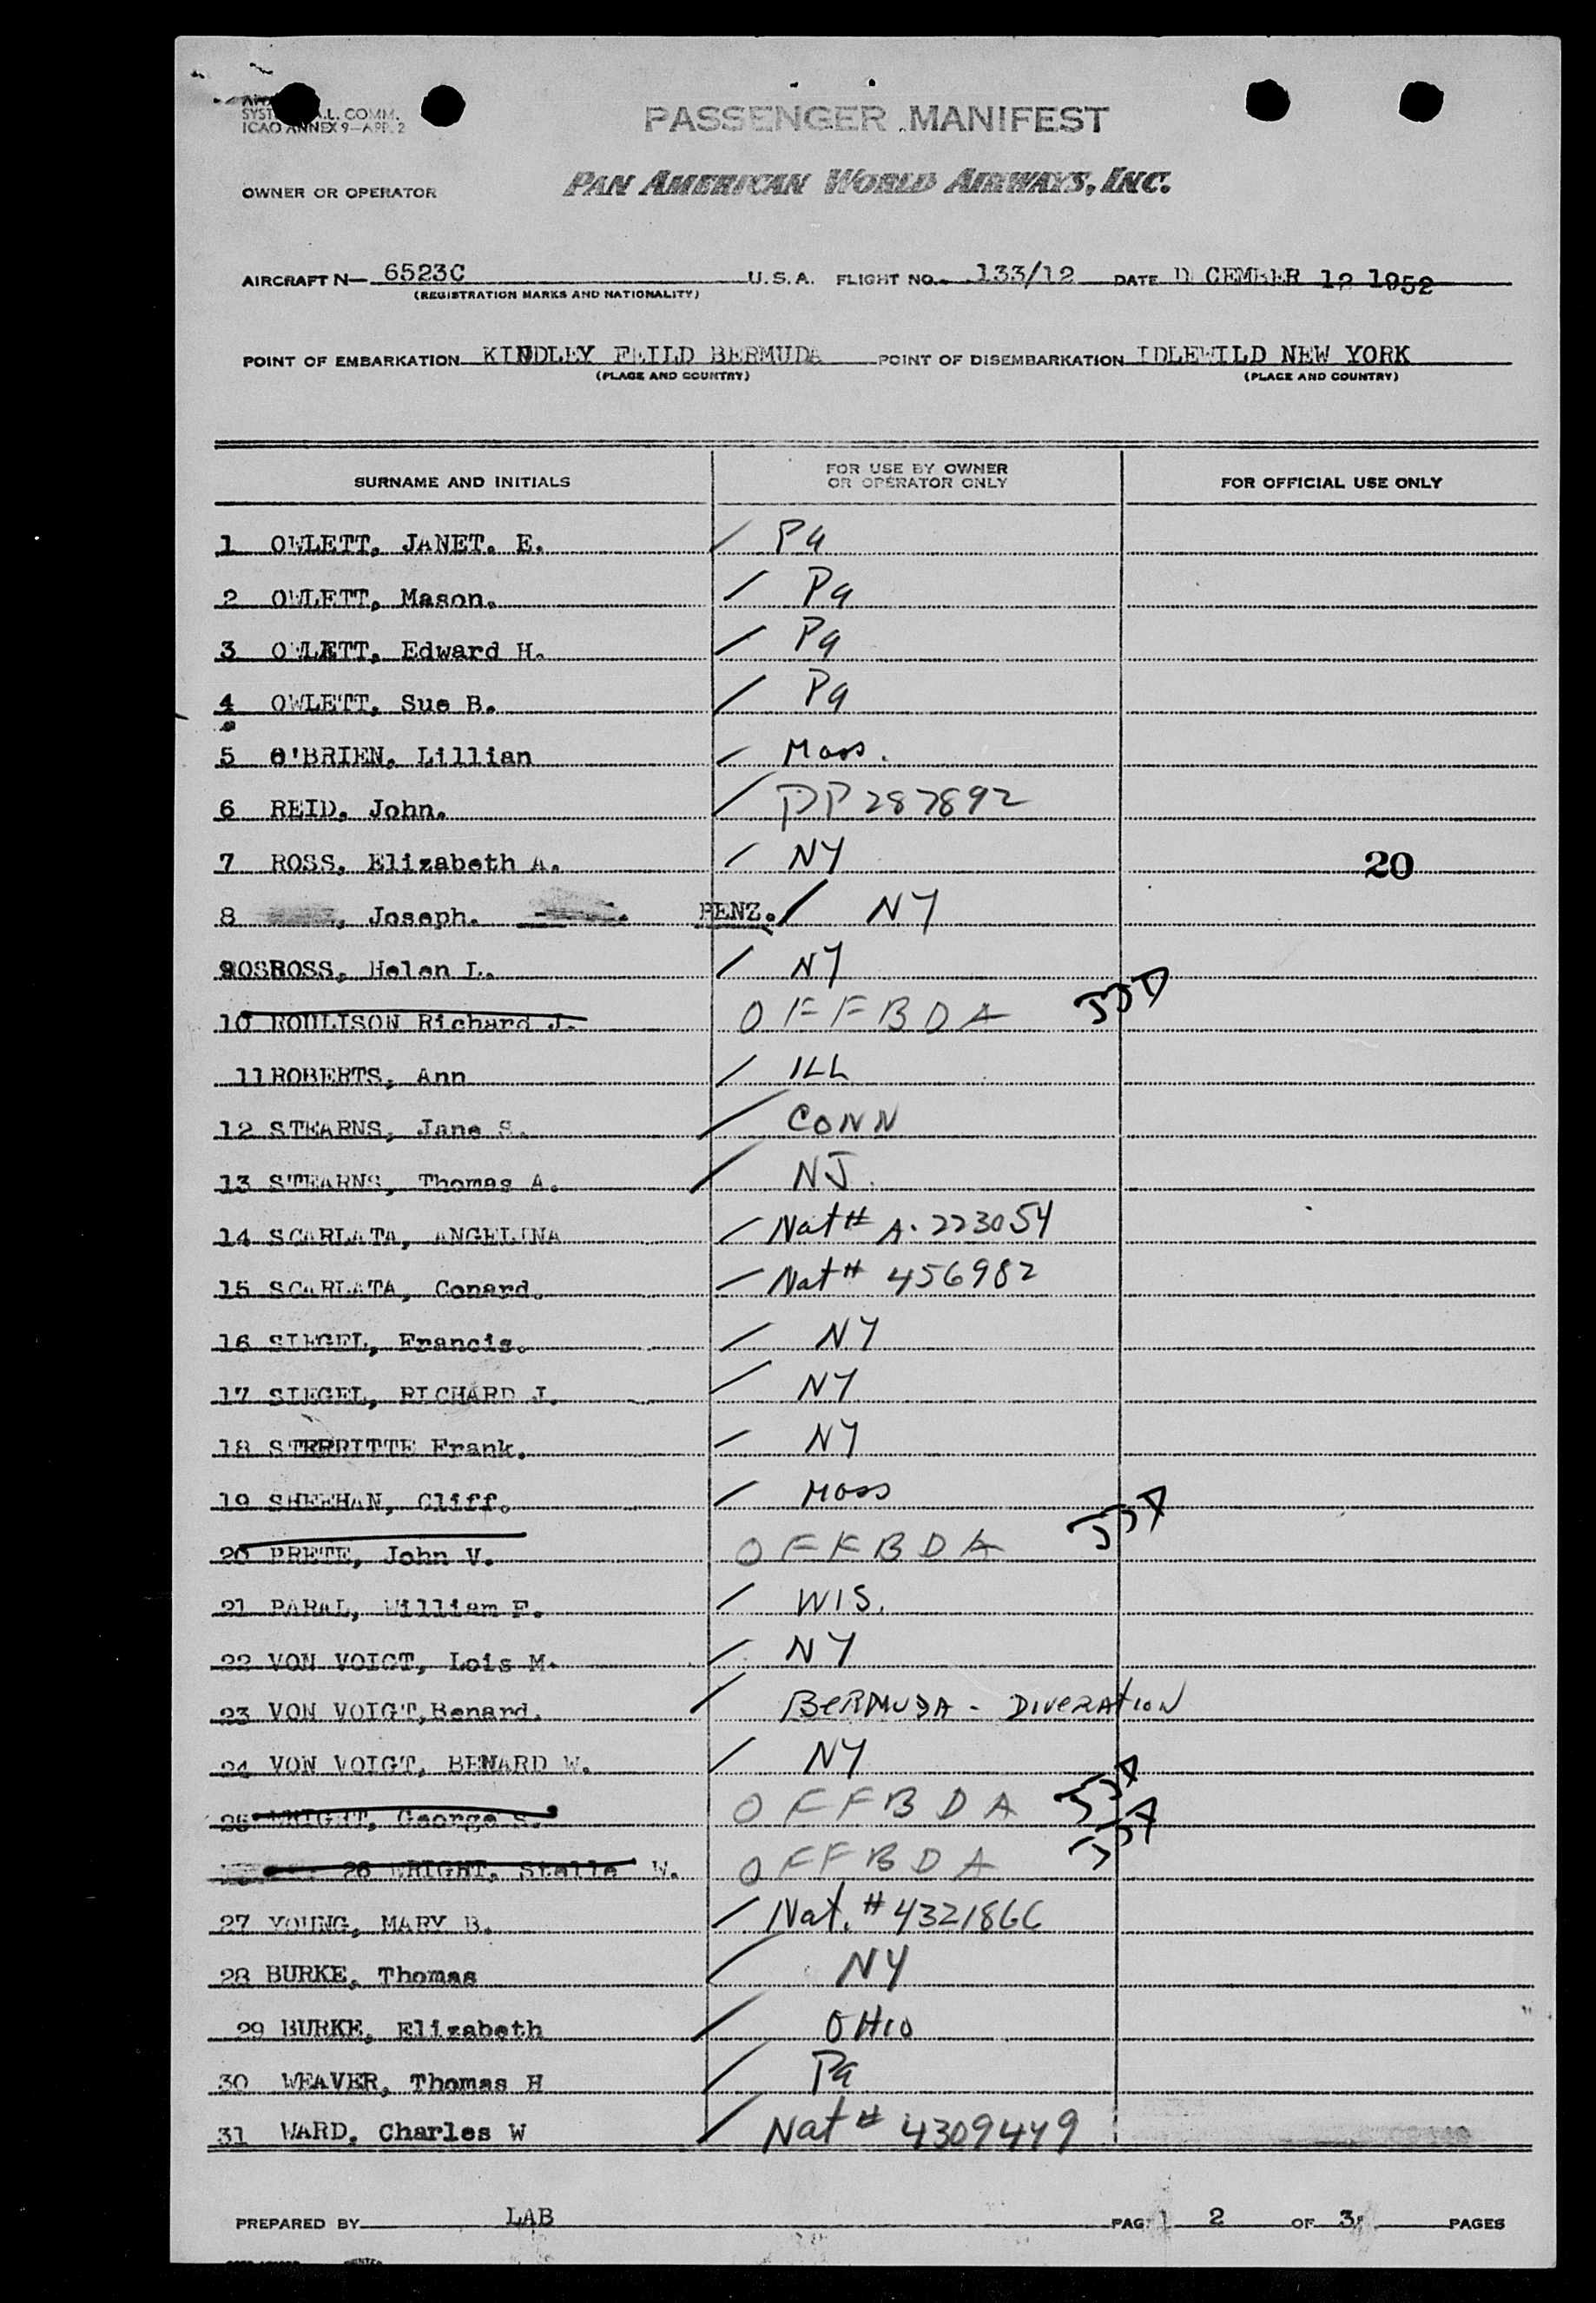 SYST A.L. COMM.
ICAO ANNEX 9—APP. 2
PASSENGER MANIFEST
OWNER OR OPERATOR PAN AMERICAN WORLD AIRWAYS, INC.
AIRCRAFT N— 6523C U.S.A. FLIGHT NO. 133/12 DATE D CEMBER 12 1952
(REGISTRATION MARKS AND NATIONALITY)
POINT OF EMBARKATION KINDLEY FEILD BERMUDA POINT OF DISEMBARKATION IDLEWILD NEW YORK
(PLACE AND COUNTRY) (PLACE AND COUNTRY)
SURNAME AND INITIALS FOR USE BY OWNER OR OPERATOR ONLY FOR OFFICIAL USE ONLY
1 OWLETT, JANET. E. / Pa
2 OWLETT, Mason. / Pa
3 OWLETT, Edward H. / Pa
4 OWLETT, Sue B. / Pa
5 O'BRIEN, Lillian / Mass.
6 REID, John. / PP 287892
7 ROSS, Elizabeth A. / NY 20
8 , Joseph. BENZ. / NY
9 ROSS, Helen L. / NY
10 ROULISON Richard J. OFF BDA
11 ROBERTS, Ann / ILL
12 STEARNS, Jane S. / CONN
13 STEARNS, Thomas A. / NJ.
14 SCARLATA, ANGELINA / Nat # A. 223054
15 SCARLATA, Conard. / Nat # 456982
16 SIEGEL, Francis. / NY
17 SIEGEL, RICHARD J. / NY
18 STERRITTE Frank. / NY
19 SHEEHAN, Cliff. / Mass
20 PRETE, John V. OFF BDA
21 PARAL, William F. / WIS.
22 VON VOIGT, Lois M. / NY
23 VON VOIGT, Benard. / BERMUDA - DIVERATION
24 VON VOIGT, BENARD W. / NY
25 WRIGHT, George S. OFF BDA
26 WRIGHT, Stelle W. OFF BDA
27 YOUNG, MARY B. / Nat. # 4321866
28 BURKE, Thomas / NY
29 BURKE, Elizabeth / OHIO
30 WEAVER, Thomas H / Pa
31 WARD, Charles W / Nat # 4309449
PREPARED BY LAB PAG 2 OF 3 PAGES